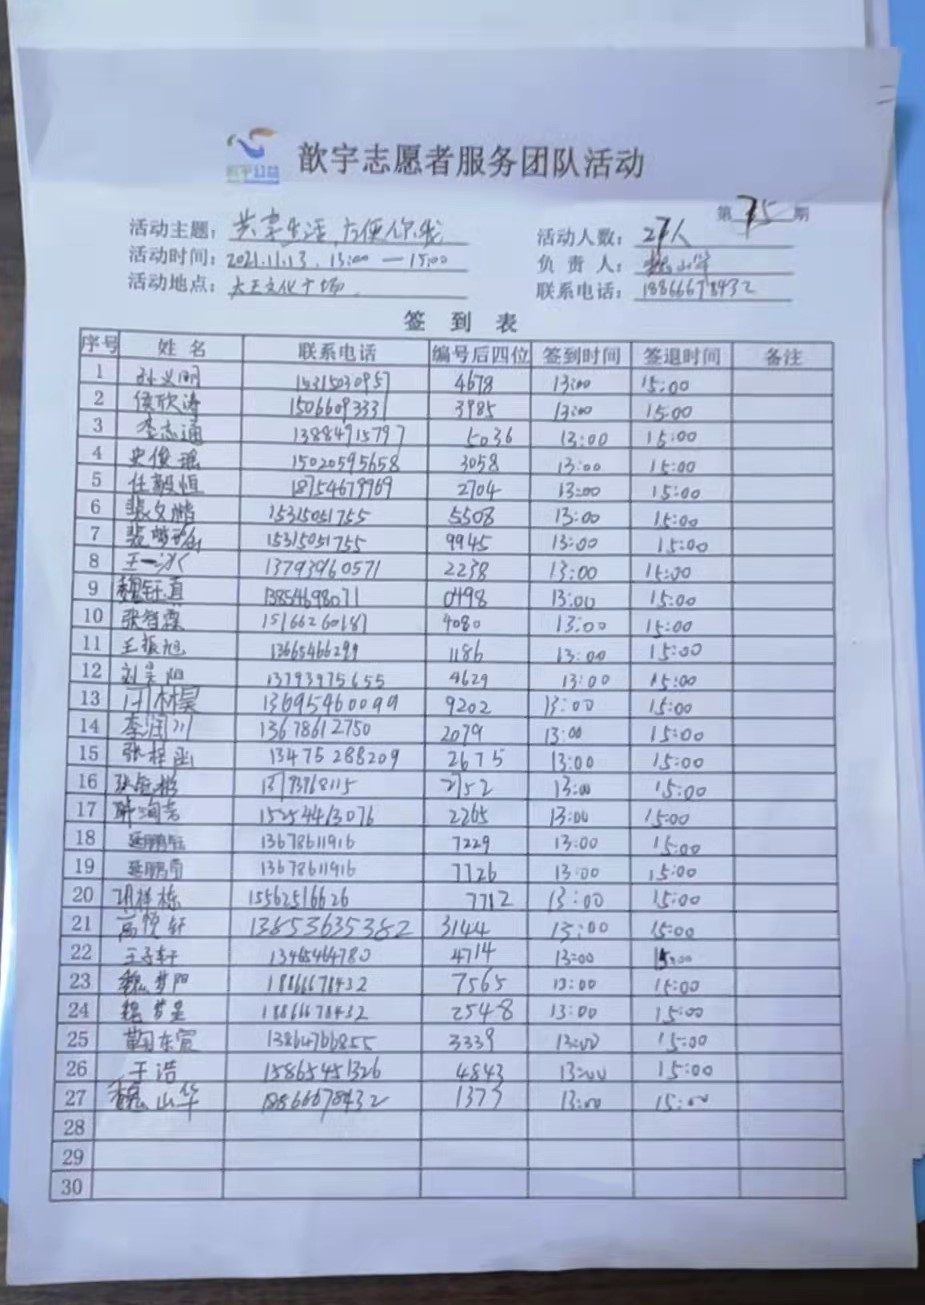 歆宇公益
歆宇志愿者服务团队活动
第 75 期
活动主题: 共享生活,方便你我
活动人数: 27人
活动时间: 2021.11.13. 13:00 — 15:00
负责人: 魏山华
活动地点: 大王文化广场.
联系电话: 18866678432
签到表
序号 姓名 联系电话 编号后四位 签到时间 签退时间 备注
1 4678 13:00 15:00
2 侯欣涛 15066093331 3985 13:00 15:00
3 李志通 13884915797 5036 13:00 15:00
4 史俊瑶 15020595658 3058 13:00 15:00
5 任毅恒 18754679969 2704 13:00 15:00
6 裴文楷 15315051755 5508 13:00 15:00
7 15315051755 9945 13:00 15:00
8 王一冰 13793960571 2238 13:00 15:00
9 魏钰直 13854698071 0498 13:00 15:00
10 张智霖 4080 13:00 15:00
11 王振旭 13665466299 1186 13:00 15:00
12 刘昊阳 13793975655 4629 13:00 15:00
13 13695460099 9202 13:00 15:00
14 李润川 13678612750 2079 13:00 15:00
15 张梓函 13475288209 2675 13:00 15:00
16 2752 13:00 15:00
17 15254463076 2265 13:00 15:00
18 延鹏钰 13678611916 7229 13:00 15:00
19 13678611916 7726 13:00 15:00
20 胡祥栋 15562516626 7712 13:00 15:00
21 高悦轩 13853635382 3144 13:00 15:00
22 王子轩 13465464780 4714 13:00 15:00
23 魏梦阳 18866678432 7565 13:00 15:00
24 魏梦星 18866678432 2548 13:00 15:00
25 13864766855 3339 13:00 15:00
26 于浩 15865451326 4843 13:00 15:00
27 魏山华 18866678432 1373 13:00 15:00
28
29
30